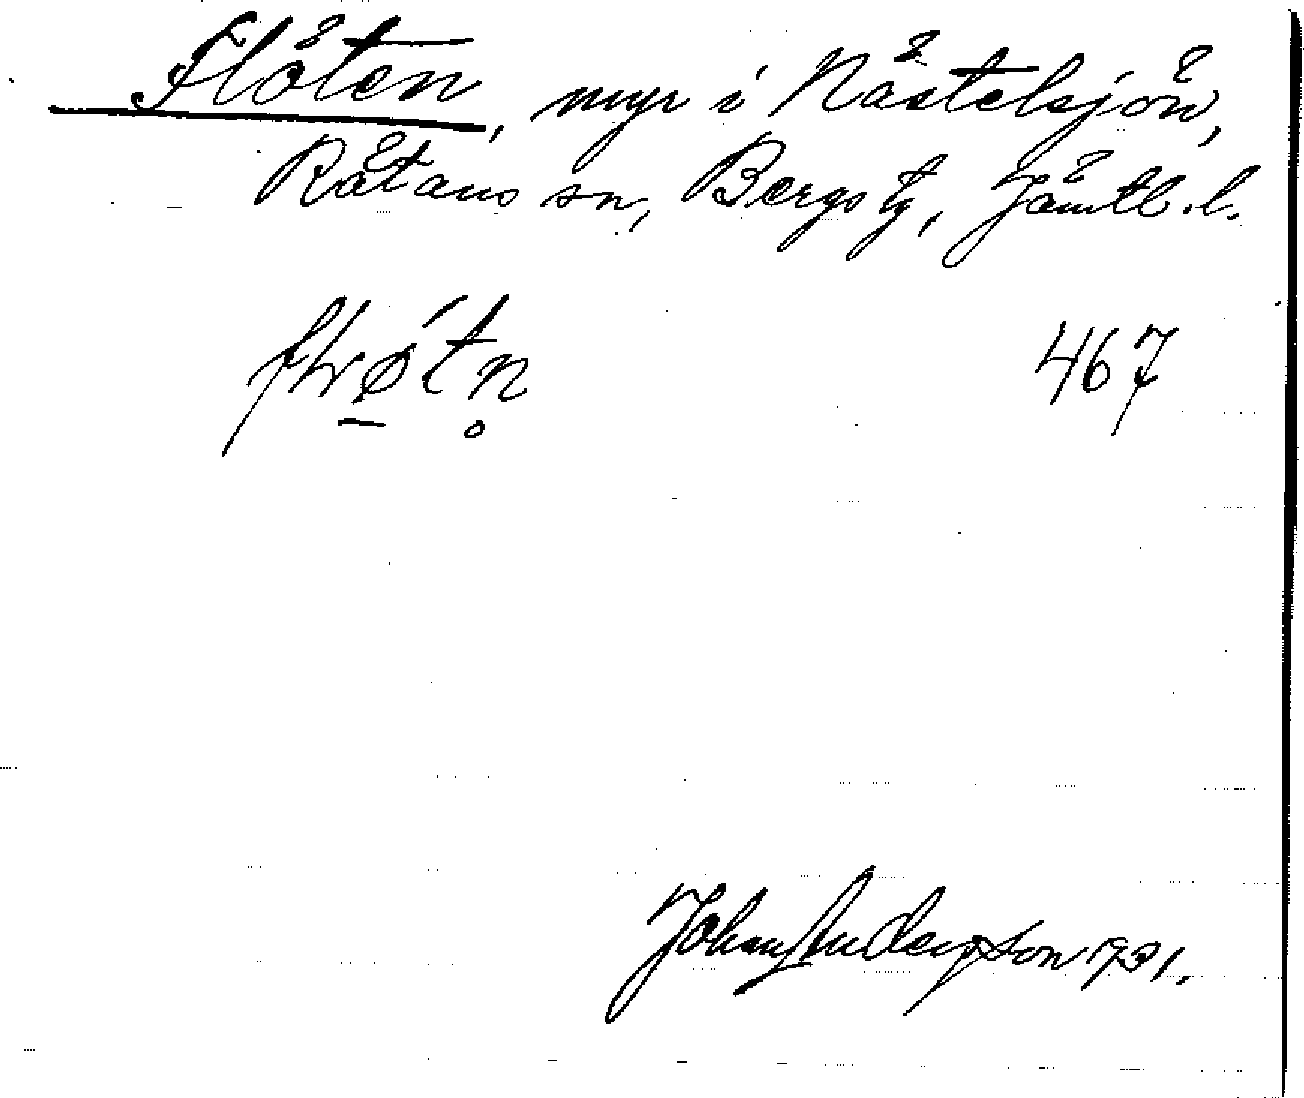 Flöten, myr i Nästelsjön,
Rätans sn, Bergs tg, Jämtl. l.
467
Johan Anderson 1931.